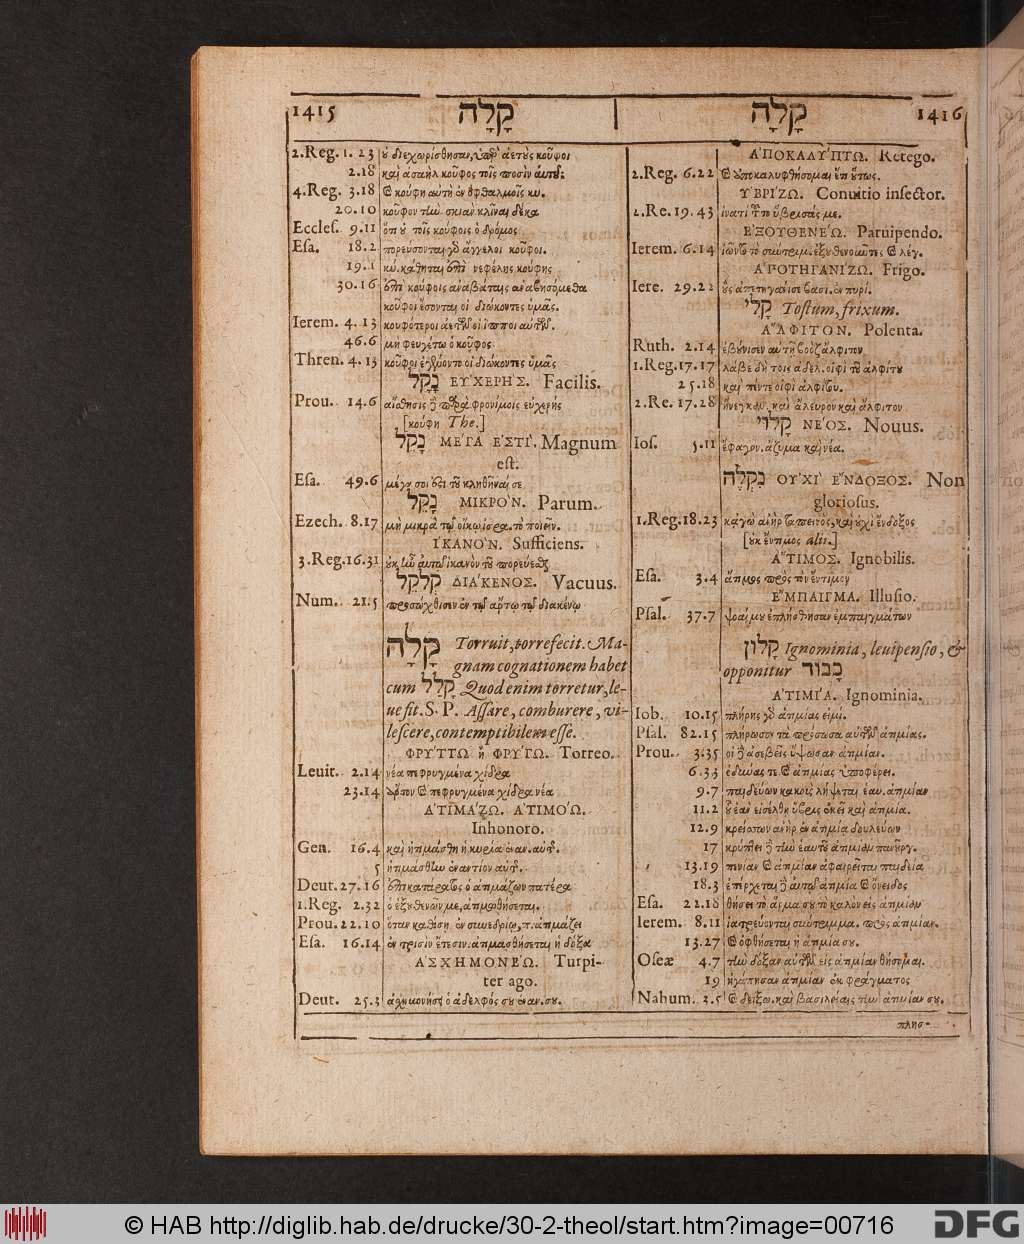 1415 קָלָה
2.Reg. 1.23 οὐ διεχωρίσθησαν, ὑπὲρ ἀετοὺς κοῦφοι
2.18 καὶ ἀσαὴλ κοῦφος τοῖς ποσὶν αὐτοῦ
4.Reg. 3.18 καὶ κούφη αὐτὴ ἐν ὀφθαλμοῖς κυ.
20.10 κοῦφον τὴν σκιὰν κλῖναι δέκα
Eccles. 9.11 ὅτι οὐ τοῖς κούφοις ὁ δρόμος
Esa. 18.2 πορεύσονται γὰρ ἄγγελοι κοῦφοι.
19.1 κύ. κάθηται ἐπὶ νεφέλης κούφης
30.16 ἐπὶ κούφοις ἀναβάταις ἀναβησόμεθα
κοῦφοι ἔσονται οἱ διώκοντες ὑμᾶς.
Ierem. 4.13 κουφότεροι ἀετῶν οἱ ἵπποι αὐτῶν.
46.6 μὴ φευγέτω ὁ κοῦφος
Thren. 4.13 κοῦφοι ἐγένοντο οἱ διώκοντες ὑμᾶς
נָקֵל ΕΥ̓ΧΕΡΉΣ. Facilis.
Prou. 14.6 αἴσθησις δὲ παρὰ φρονίμοις εὐχερής
[κούφη The.]
נָקֵל ΜΈΓΑ ἘΣΤἸ. Magnum
est.
Esa. 49.6 μέγα σοι ἐστι τοῦ κληθῆναί σε
נָקֵל ΜΙΚΡῸΝ. Parum.
Ezech. 8.17 μὴ μικρὰ τῷ οἴκῳ ἰσρα. τὸ ποιεῖν.
ἽΚΑΝῸΝ. Sufficiens.
3.Reg. 16.31 οὐκ ἦν αὐτῷ ἱκανὸν τοῦ πορεύεσθαι
קְלֹקֵל ΔΙΆΚΕΝΟΣ. Vacuus.
Num. 21.5 προσώχθισεν ἐν τῷ ἄρτῳ τῷ διακένῳ
קָלָה Torruit, torrefecit. Ma-
gnam cognationem habet
cum קָלַל Quod enim torretur, le-
ue fit. S. P. Assare, comburere, vi-
lescere, contemptibilem esse.
ΦΡΎΤΤΩ ἢ ΦΡΎΓΩ. Torreo.
Leuit. 2.14 νέα πεφρυγμένα χίδρα
23.14 ἄρτον καὶ πεφρυγμένα χίδρα νέα
ἈΤΙΜΆΖΩ. ἈΤΙΜΌΩ.
Inhonoro.
Gen. 16.4 καὶ ἠτιμάσθη ἡ κυρία ἐναν. αὐτ.
5 ἠτιμάσθην ἐναντίον αὐτ.
Deut. 27.16 ἐπικατάρατος ὁ ἀτιμάζων πατέρα
1.Reg. 2.32 ὁ ἐξουθενῶν με, ἀτιμωθήσεται.
Prou. 22.10 ὅταν καθίσῃ ἐν συνεδρίῳ, π. ἀτιμάζει
Esa. 16.14 ἐν τρισὶν ἔτεσιν. ἀτιμασθήσεται ἡ δόξα
ἈΣΧΗΜΟΝΈΩ. Turpi-
ter ago.
Deut. 25.3 ἀσχημονήσῃ ὁ ἀδελφός σου ἐναν. σου.
קָלָה 1416
ἈΠΟΚΑΛΎΠΤΩ. Retego.
2.Reg. 6.22 καὶ ἀποκαλυφθήσομαι ἔτι οὕτως.
ὙΒΡΊΖΩ. Conuitio insector.
2.Re. 19.43 ἱνατί τοῦτο ὕβρισάς με.
ἘΞΟΥΘΕΝΈΩ. Paruipendo.
Ierem. 6.14 ἰῶντο τὸ σύντριμ. ἐξουθενοῦντες καὶ λέγ.
ἈΠΟΤΗΓΑΝΊΖΩ. Frigo.
Iere. 29.22 οὓς ἀπετηγάνισε βασι. ἐν πυρί.
קָלִי Tostum, frixum.
ἌΛΦΙΤΟΝ. Polenta.
Ruth. 2.14 ἐβούνισεν αὐτῇ βοὸζ ἄλφιτον
1.Reg. 17.17 λάβε δὴ τοῖς ἀδελ. οἰφὶ τοῦ ἀλφίτου
25.18 καὶ πέντε οἰφὶ ἀλφίτου.
2.Re. 17.28 ἤνεγκαν. καὶ ἄλευρον καὶ ἄλφιτον
קָלוּי ΝΈΟΣ. Nouus.
Ios. 5.11 ἔφαγον. ἄζυμα καὶ νέα.
נִקְלֶה ΟΥ̓ΧῚ ἜΝΔΟΞΟΣ. Non
gloriosus.
1.Reg. 18.23 κἀγὼ ἀνὴρ ταπεινὸς, καὶ οὐχὶ ἔνδοξος
[οὐκ ἔντιμος alii.]
ἌΤΙΜΟΣ. Ignobilis.
Esa. 3.4 ἄτιμος πρὸς τὸν ἔντιμον
ἜΜΠΑΙΓΜΑ. Illusio.
Psal. 37.7 ψόαι μου ἐπλήσθησαν ἐμπαιγμάτων
קָלוֹן Ignominia, leuipensio, &
opponitur כָּבוֹד
ἈΤΙΜΊΑ. Ignominia.
Iob. 10.15 πλήρης γὰρ ἀτιμίας εἰμί.
Psal. 82.15 πλήρωσον τὰ πρόσωπα αὐτῶν ἀτιμίας.
Prou. 3.35 οἱ δὲ ἀσεβεῖς ὕψωσαν ἀτιμίαν.
6.33 ὀδύνας τε καὶ ἀτιμίας ὑποφέρει.
9.7 παιδεύων κακοὺς λήψεται ἑαυ. ἀτιμίαν
11.2 οὗ ἐὰν εἰσέλθῃ ὕβρις ἐκεῖ καὶ ἀτιμία.
12.9 κρείσσων ἀνὴρ ἐν ἀτιμίᾳ δουλεύων
17 κρύπτει δὲ τὴν ἑαυτοῦ ἀτιμίαν πανοῦργ.
13.19 πενίαν καὶ ἀτιμίαν ἀφαιρεῖται παιδεία
18.3 ἐπέρχεται δὲ αὐτῷ ἀτιμία καὶ ὄνειδος
Esa. 22.18 θήσει τὸ ἅρμα σου τὸ καλὸν εἰς ἀτιμίαν
Ierem. 8.11 ἰατρεύονται σύντριμμα. πρὸς ἀτιμίαν.
13.27 καὶ ὀφθήσεται ἡ ἀτιμία σου.
Oseæ 4.7 τὴν δόξαν αὐτῶν εἰς ἀτιμίαν θήσομαι.
19 ἠγάπησαν ἀτιμίαν ἐκ φράγματος
Nahum. 3.5 καὶ δείξω. καὶ βασιλείαις τὴν ἀτιμίαν σου.
πλησ-
© HAB http://diglib.hab.de/drucke/30-2-theol/start.htm?image=00716
DFG